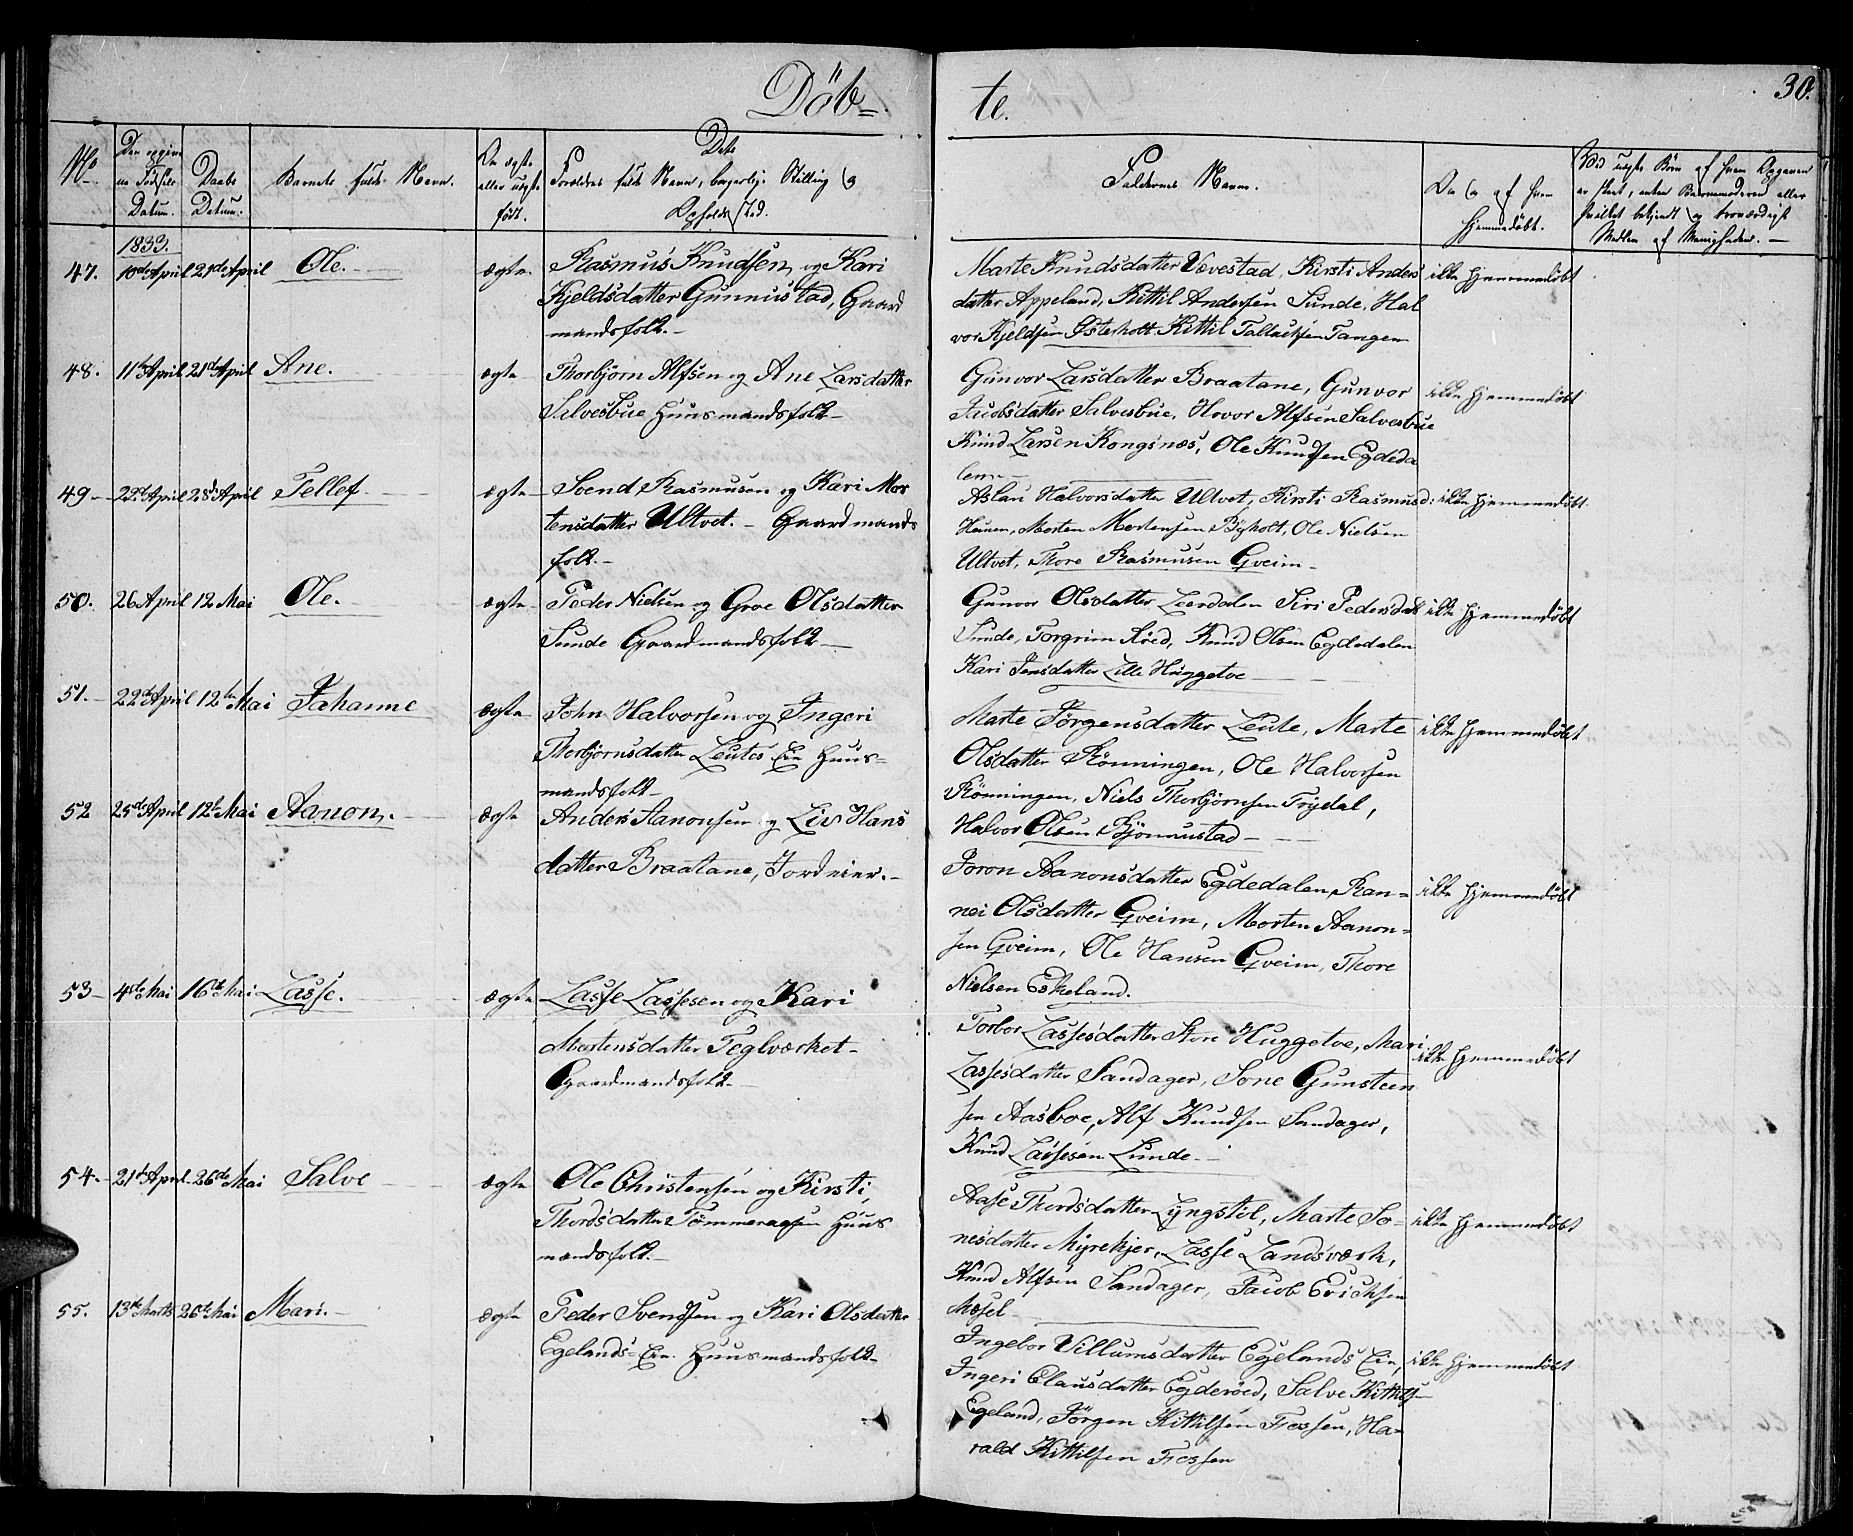 Döb-
te.
30.
No
Den opgiv-
ne Födsels
Datum.
Daabs
Datum.
Barnets fulde Navn.
Om ægte
eller uægte
född.
Dets
Forældres fulde Navn, borgerlige Stilling og
Opholds Sted.
Faddernes Navn.
Om og af hvem
hjemmedöbt.
Ved uægte Börn af hvem Opgaven
er skeet, enten Barnemoderen eller
hvilket bekjendt og troværdigt
Medlem af Menigheden. —
1833.
47. 10de April 21de April Ole. — ægte
Rasmus Knudsen og Kari
Kjeldsdatter Gunnustad, Gaard
mandsfolk. —
Marte Knudsdatter Vævestad, Kirsti Anders
datter Appeland, Kittil Andersen Sunde, Hal
vor Kjeldsen Østerholt Kittil Tallaksen Tangen
ikke hjemmedöbt
48. 11te April 21de April Ane. — ægte
Thorbjörn Alfsen og Ane Larsdatter
Salvesbue Huusmandsfolk —
Gunvor Larsdatter Braatane, Gunvor
Jacobsdatter Salvesbue, Hovor Alfsen Salvesbue
Knud Larsen Kongsnæs, Ole Knudsen Egdeda
len —
ikke hjemmedöbt
49 — 22de April 28de April Tellef. — ægte
Svend Rasmusen og Kari Mor
tensdatter Ultvet. — Gaardmands
folk. —
Aslau Halvorsdatter Ultvet, Kirsti Rasmusd:
Heinen, Morten Mortensen Böiholt, Ole Nielsen
Ultvet, Thore Rasmusen Gveim —
ikke hjemmedöbt.
50. 26 April 12 Mai Ole. — ægte
Peder Nielsen og Groe Olsdatter
Sunde Gaardmandsfolk —
Gunvor Olsdatter Leerdalen Siri Pedersdatt
Sunde, Torgrim Röed, Knud Olsen Egdedalen
Kari Jensdatter Lille Huggetoe —
ikke hjemmedöbt
51. — 22de April 12te Mai Johanne ægte
John Halvorsen og Ingeri
Thorbjörnsdatter Leutes Eie Huus-
mandsfolk —
Marte Jörgensdatter Leute, Marte
Olsdatter Rönningen, Ole Halvorsen
Rönningen, Niels Thorbjörnsen Trydal,
Halvor Olsen Björnustad —
ikke hjemmedöbt
52 25de April 12te Mai Aanon. — ægte
Anders Aanonsen og Liv Hans
datter Braatane, Jordeier. —
Joron Aanonsdatter Egdedalen, Ran-
nei Olsdatter Gveim, Morten Aanon-
sen Gveim, Ole Hansen Gveim, Thore
Nielsen Eskeland.
ikke hjemmedöbt
53 — 4de Mai 16de Mai Lasse. — ægte
Lasse Lassesen og Kari
Mortensdatter Teglværket —
Gaardmandsfolk —
Torbor Lassesdatter Store Huggetoe, Mari
Lassesdatter Sandager, Sone Gunsteen
sen Aasboe, Alf Knudsen Sandager,
Knud Lassesen Lunde. —
ikke hjemmedöbt
54. — 21de April 26de Mai Salve — ægte
Ole Christensen og Kirsti
Thordsdatter Tömmeraasen Huus
mandsfolk. —
Aase Thordsdatter Lyngstöl, Marte So-
nesdatter Myrekjer, Lasse Landsværk,
Knud Alfsen Sandager, Jacob Erichsen
Mosel —
ikke hjemmedöbt
55. 13de Marts 26de Mai Mari. — ægte
Peder Svendsen og Kari Olsdatter
Egelands-Eie. Huusmandsfolk —
Ingebor Villumsdatter Egelands Eie,
Ingeri Clausdatter Egderöed, Salve Kittils-
Egeland, Jörgen Kittilsen Fiessen, Ha-
rald Kittilsen Fiessen
ikke hjemmedöbt